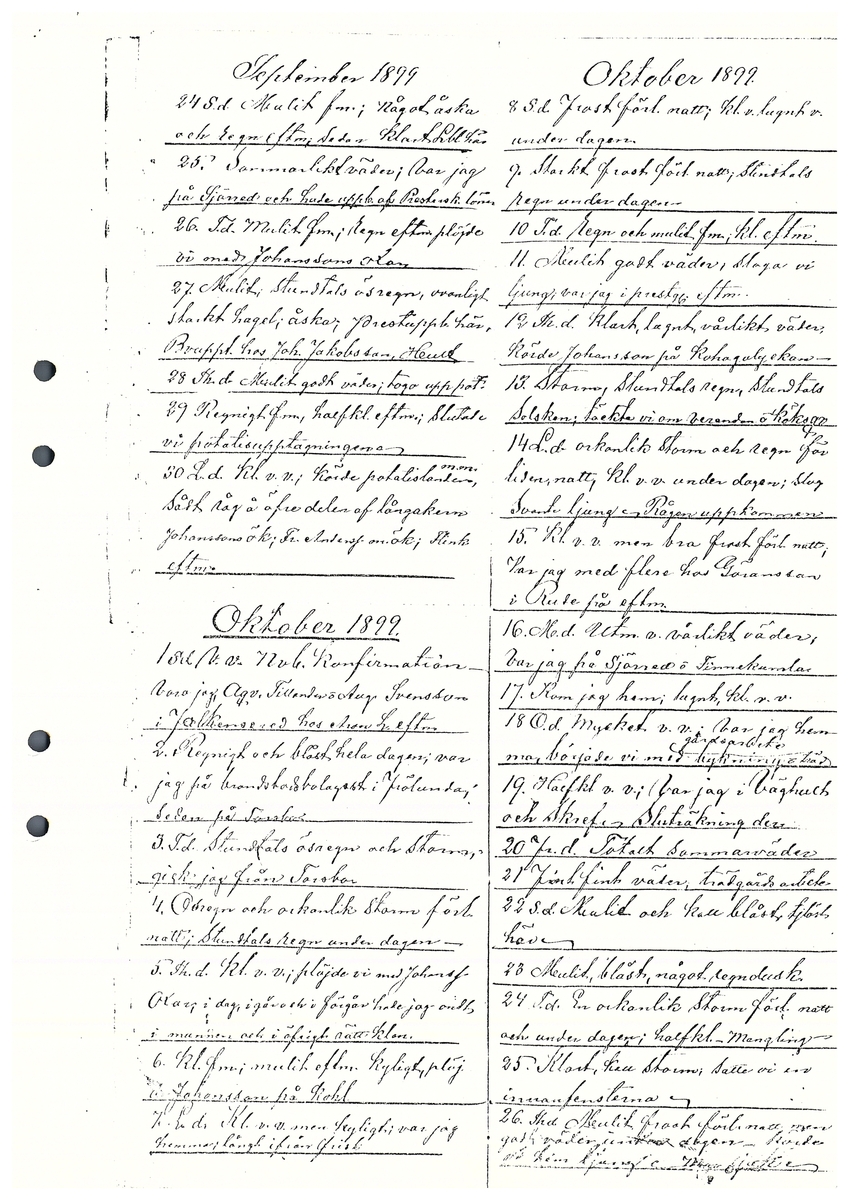 September 1899
24 S.d Mulit fm; något åska
och regn eftm; sedan klart
25. Sommarlikt väder; var jag
på Sjörred och hade uppb. af Prestersk. löner
26. T.d. Mulit fm; Regn eftm plöjde
vi med Johanssons Oxar
27. Mulit; stundtals ösregn, ovanligt
starkt hagel; åska; prestuppb. här,
hos Joh. Jakobsson,
28 Th.d. Mulit godt väder; togo upp pot.
29 Regnigt fm, halfkl. eftm; slutade
vi potatisupptagningen
30 L.d. Kl. v. v.; körde potatislanden, m.m.
sådt råg å öfre delen af långåkern
Johanssons ök; Fr. Anderss-on ök;
eftm
Oktober 1899.
1 S.d V. v. Nvb. Konfirmation
Voro jag, Agv. o Aug. Svensson
i hos eftm
2. Regnigt och blåst hela dagen; var
jag på brandstodsbolagsst i Frölunda;
sedan på Torsbo
3. T.d. Stundtals ösregn och storm;
gick jag från Torsbo
4. Ösregn och orkanlik storm förl.
natt; Stundtals regn under dagen
5. Th.d. Kl. v. v.; plöjde vi med Johanss
Oxar; i dag, i går och i förgår hade jag ondt
i munnen och i öfrigt rätt klen.
6. Kl. fm.; mulit eftm. kyligt, plöj
Johansson på Kohl
7. L.d. Kl. v. v. men kyligt; var jag
hemma; långt ifrån frisk
Oktober 1899.
8 S.d. Frost förl. natt; kl. v. lugnt v.
under dagen
9. Starkt frost förl. natt; Stundtals
regn under dagen
10 T.d. Regn och mulit fm; kl. eftm.
11. Mulit godt väder, sloga vi
ljung; var jag i prestg. eftm.
12 Th.d. Klart, lugnt, vårlikt väder,
körde Johansson på
13. Storm, stundtals regn, stundtals
solsken; täckte vi om verandan o
14 L.d. orkanlik storm och regn för
liden natt; kl. v. v. under dagen; slog
Svante ljung Rågen uppkommen
15. Kl. v. v. men bra frost förl. natt;
Var jag med flere hos Göransson
i Rude på eftm.
16. M.d. Utm. v. vårlikt väder,
Var jag på Sjörred o Finnekumla
17. Kom jag hem; lugnt, kl. v. v.
18 O.d. Mycket v. v.; Var jag hem
ma; började vi med gårdsarbete
19. Halfkl v. v.; var jag i Våghult
och skref Sluträkning der
20 Fr.d. Totalt sommarväder
21 Fint fint väder, trädgårdsarbete
22 S.d. Mulit och kall blåst,
här
23 Mulit, blåst, något regndusk.
24 T.d. En orkanlik storm förl. natt
och under dagen; halfkl. Mangling
25. Klart, kall storm; satte vi in
innanfensterna
26. Th.d Mulit frost förl. natt, men
godt väder under dagen körde
vi hem ljung